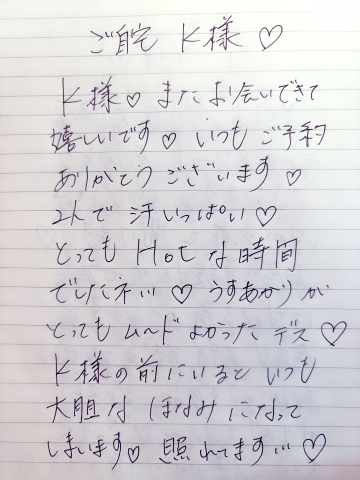 ご自宅 K様 ♡
K様♡ またお会いできて
嬉しいです♡ いつもご予約
ありがとうございます♡
2人で汗いっぱい♡
とってもHotな時間
でしたネ!!! ♡ うすあかりが
とってもムードよかったデス♡
K様の前にいるといつも
大胆なほなみになって
しまいます♡ 照れてます…♡